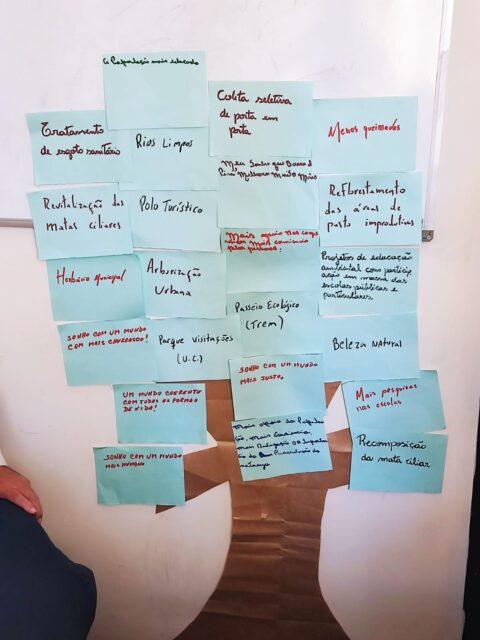 População mais educada
Tratamento
de esgoto sanitário
Rios Limpos
Coleta seletiva
de porta em
porta
Menos queimadas
Revitalização das
matas ciliares
Polo Turístico
Meu Sonho que Barra d
Piraí Melhore Muito Mais
Reflorestamento
das áreas de
pasto improdutivas
Herbário Municipal
Arborização
Urbana
Mais apoio nas
Projetos de educação
ambiental com particip
ação em massa das
escolas públicas e
particulares.
SONHO COM UM MUNDO
COM MAIS CHURRASCO!
Parque Visitações
(U.C.)
Passeio Ecológico
(Trem)
Beleza Natural
UM MUNDO COERENTE
COM TODAS AS FORMAS
DE VIDA!
SONHO COM UM MUNDO
MAIS JUSTO.
Mais pesquisas
nas escolas
SONHO COM UM MUNDO
MAIS HUMANO
Mais apoio da Popula
ção, Mais
Recomposição
da mata ciliar